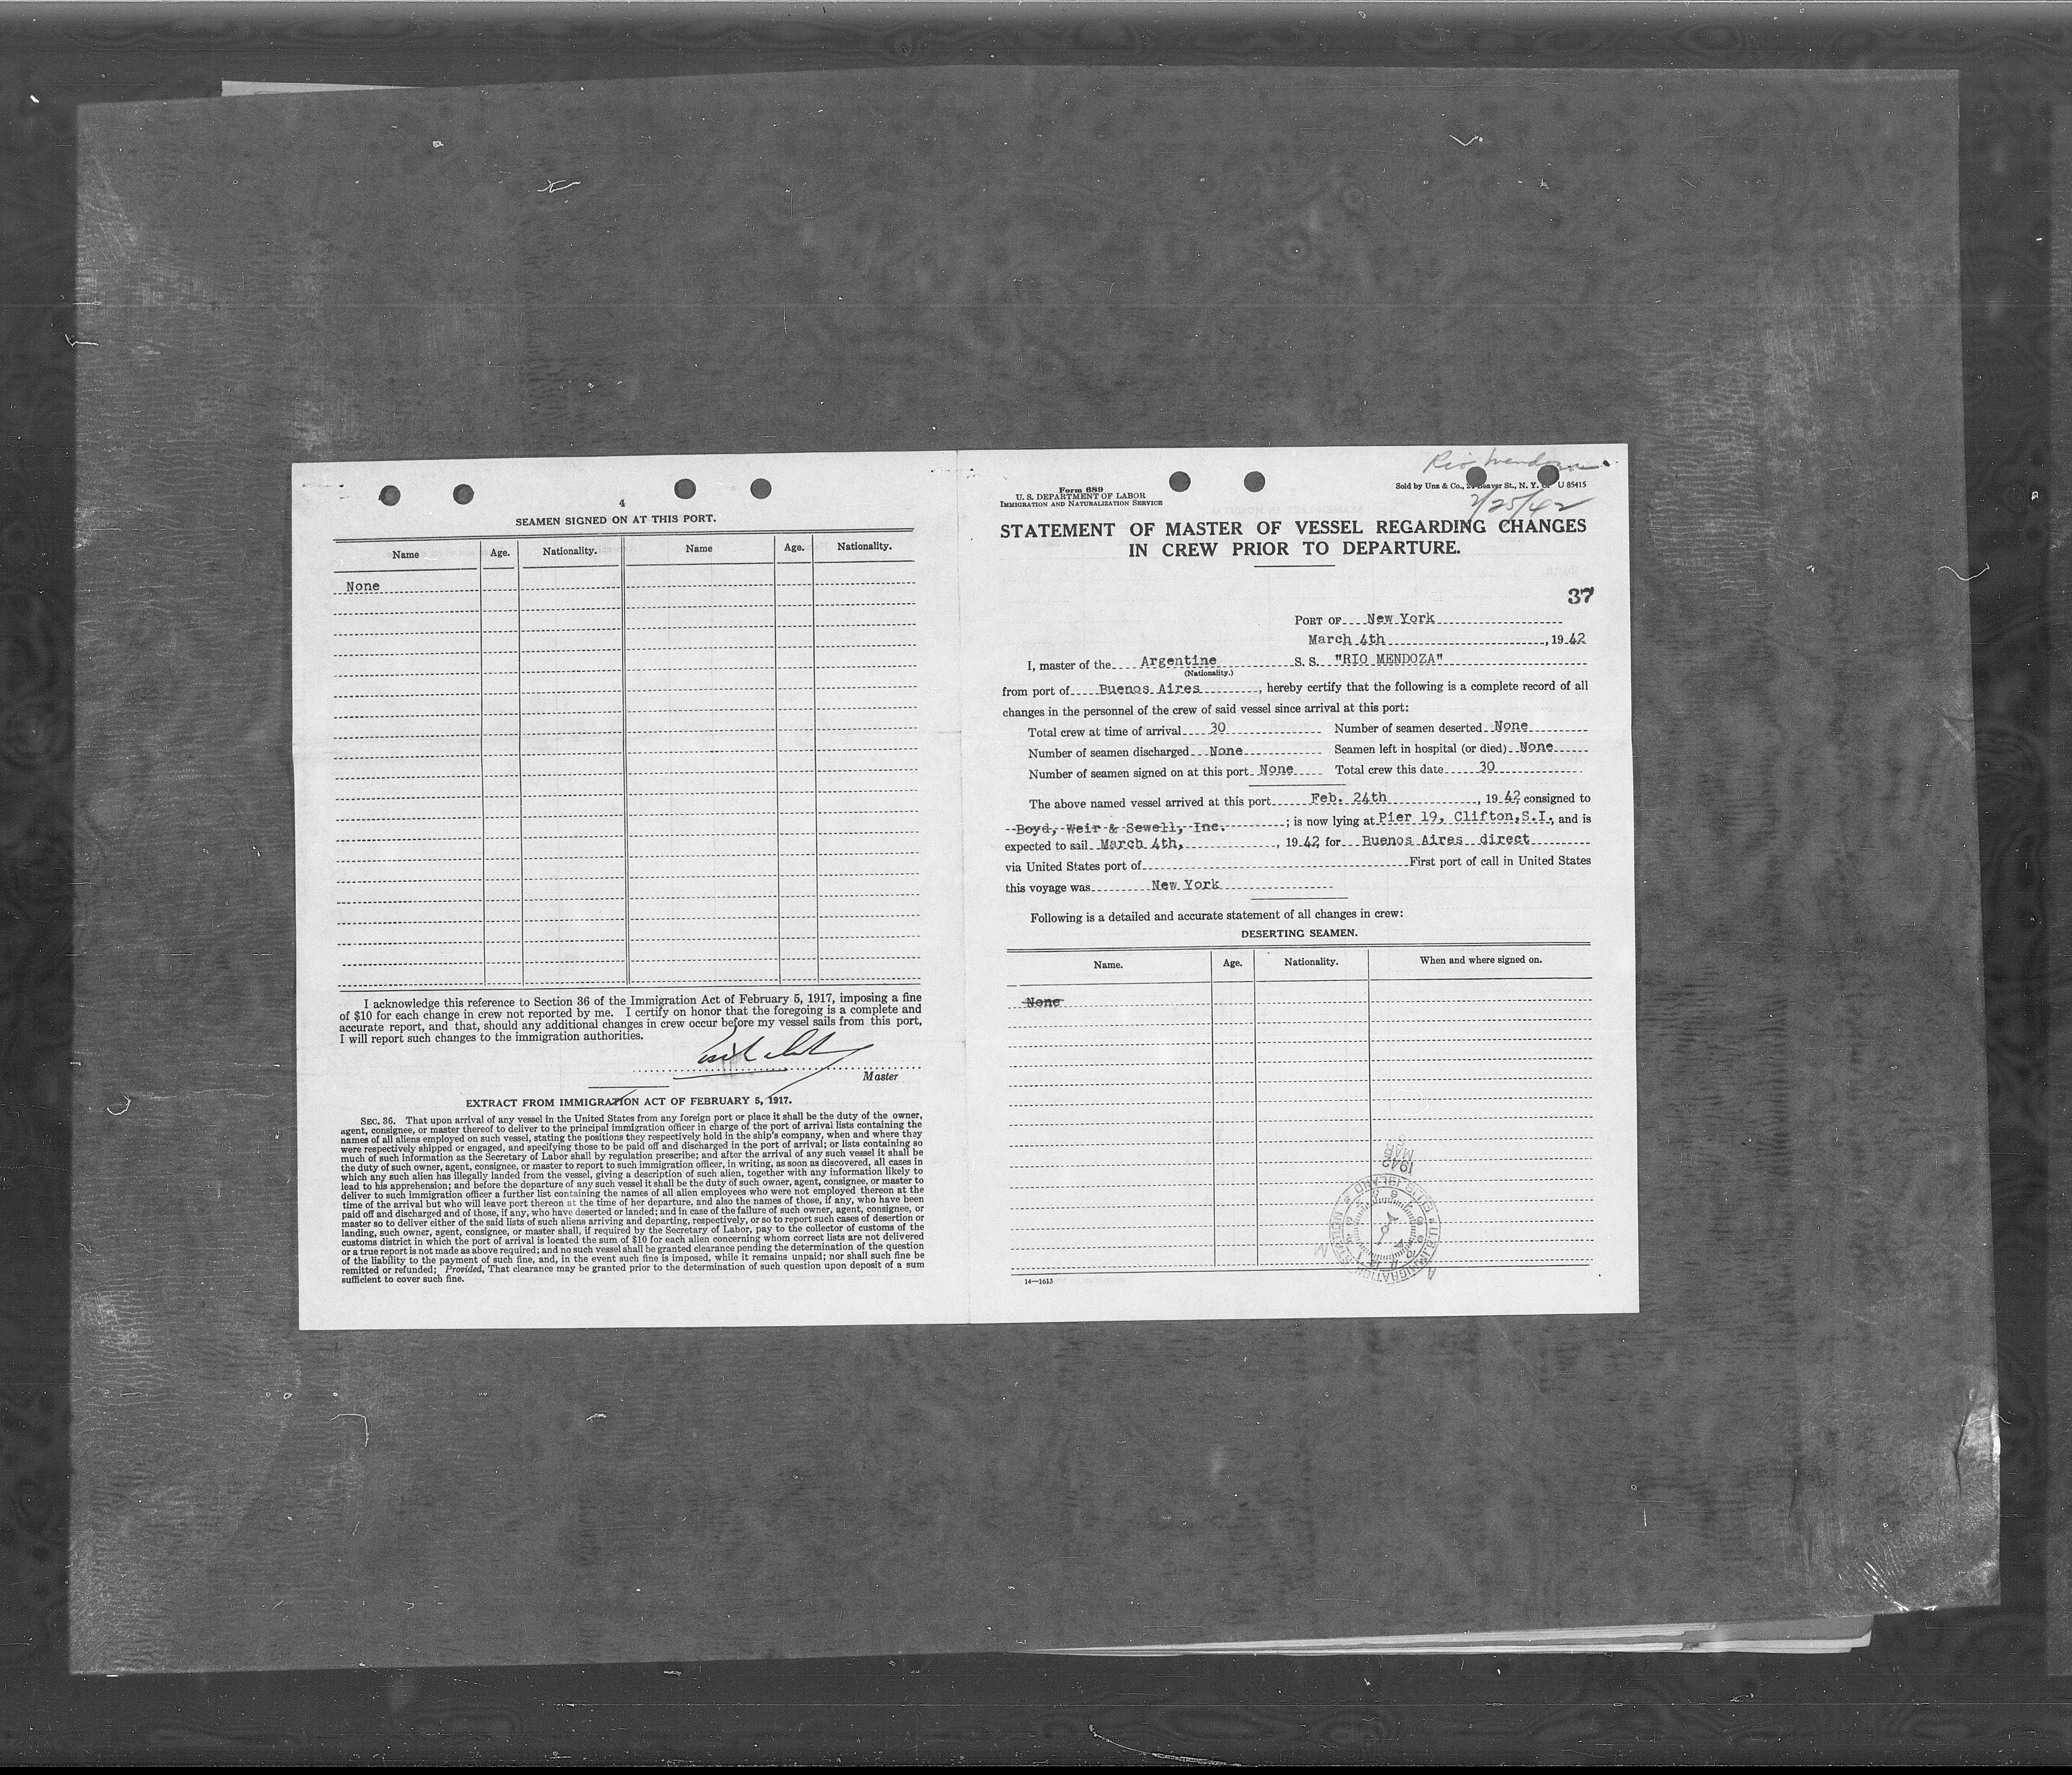 4
SEAMEN SIGNED ON AT THIS PORT.
Name Age. Nationality. Name Age. Nationality.
None
I acknowledge this reference to Section 36 of the Immigration Act of February 5, 1917, imposing a fine
of $10 for each change in crew not reported by me. I certify on honor that the foregoing is a complete and
accurate report, and that, should any additional changes in crew occur before my vessel sails from this port,
I will report such changes to the immigration authorities.
Master
EXTRACT FROM IMMIGRATION ACT OF FEBRUARY 5, 1917.
SEC. 36. That upon arrival of any vessel in the United States from any foreign port or place it shall be the duty of the owner,
agent, consignee, or master thereof to deliver to the principal immigration officer in charge of the port of arrival lists containing the
names of all aliens employed on such vessel, stating the positions they respectively hold in the ship's company, when and where they
were respectively shipped or engaged, and specifying those to be paid off and discharged in the port of arrival; or lists containing so
much of such information as the Secretary of Labor shall by regulation prescribe; and after the arrival of any such vessel it shall be
the duty of such owner, agent, consignee, or master to report to such immigration officer, in writing, as soon as discovered, all cases in
which any such alien has illegally landed from the vessel, giving a description of such alien, together with any information likely to
lead to his apprehension; and before the departure of any such vessel it shall be the duty of such owner, agent, consignee, or master to
deliver to such immigration officer a further list containing the names of all alien employees who were not employed thereon at the
time of the arrival but who will leave port thereon at the time of her departure, and also the names of those, if any, who have been
paid off and discharged and of those, if any, who have deserted or landed; and in case of the failure of such owner, agent, consignee, or
master so to deliver either of the said lists of such aliens arriving and departing, respectively, or so to report such cases of desertion or
landing, such owner, agent, consignee, or master shall, if required by the Secretary of Labor, pay to the collector of customs of the
customs district in which the port of arrival is located the sum of $10 for each alien concerning whom correct lists are not delivered
or a true report is not made as above required; and no such vessel shall be granted clearance pending the determination of the question
of the liability to the payment of such fine, and, in the event such fine is imposed, while it remains unpaid; nor shall such fine be
remitted or refunded; Provided, That clearance may be granted prior to the determination of such question upon deposit of a sum
sufficient to cover such fine.
Rio Mendoza
Form 689
U. S. DEPARTMENT OF LABOR
IMMIGRATION AND NATURALIZATION SERVICE
Sold by Unz & Co., Beaver St., N. Y. U 85415
2/25/42
STATEMENT OF MASTER OF VESSEL REGARDING CHANGES
IN CREW PRIOR TO DEPARTURE.
37
PORT OF New York
March 4th, 1942
I, master of the Argentine S. S. "RIO MENDOZA"
(Nationality.)
from port of Buenos Aires, hereby certify that the following is a complete record of all
changes in the personnel of the crew of said vessel since arrival at this port:
Total crew at time of arrival 30 Number of seamen deserted None
Number of seamen discharged None Seamen left in hospital (or died) None
Number of seamen signed on at this port None Total crew this date 30
The above named vessel arrived at this port Feb. 24th, 1942 consigned to
Boyd, Weir & Sewell, Inc.; is now lying at Pier 19, Clifton, S.I., and is
expected to sail March 4th, , 1942 for Buenos Aires direct
via United States port of First port of call in United States
this voyage was New York
Following is a detailed and accurate statement of all changes in crew:
DESERTING SEAMEN.
Name. Age. Nationality. When and where signed on.
None
1942
MAR
14—1613